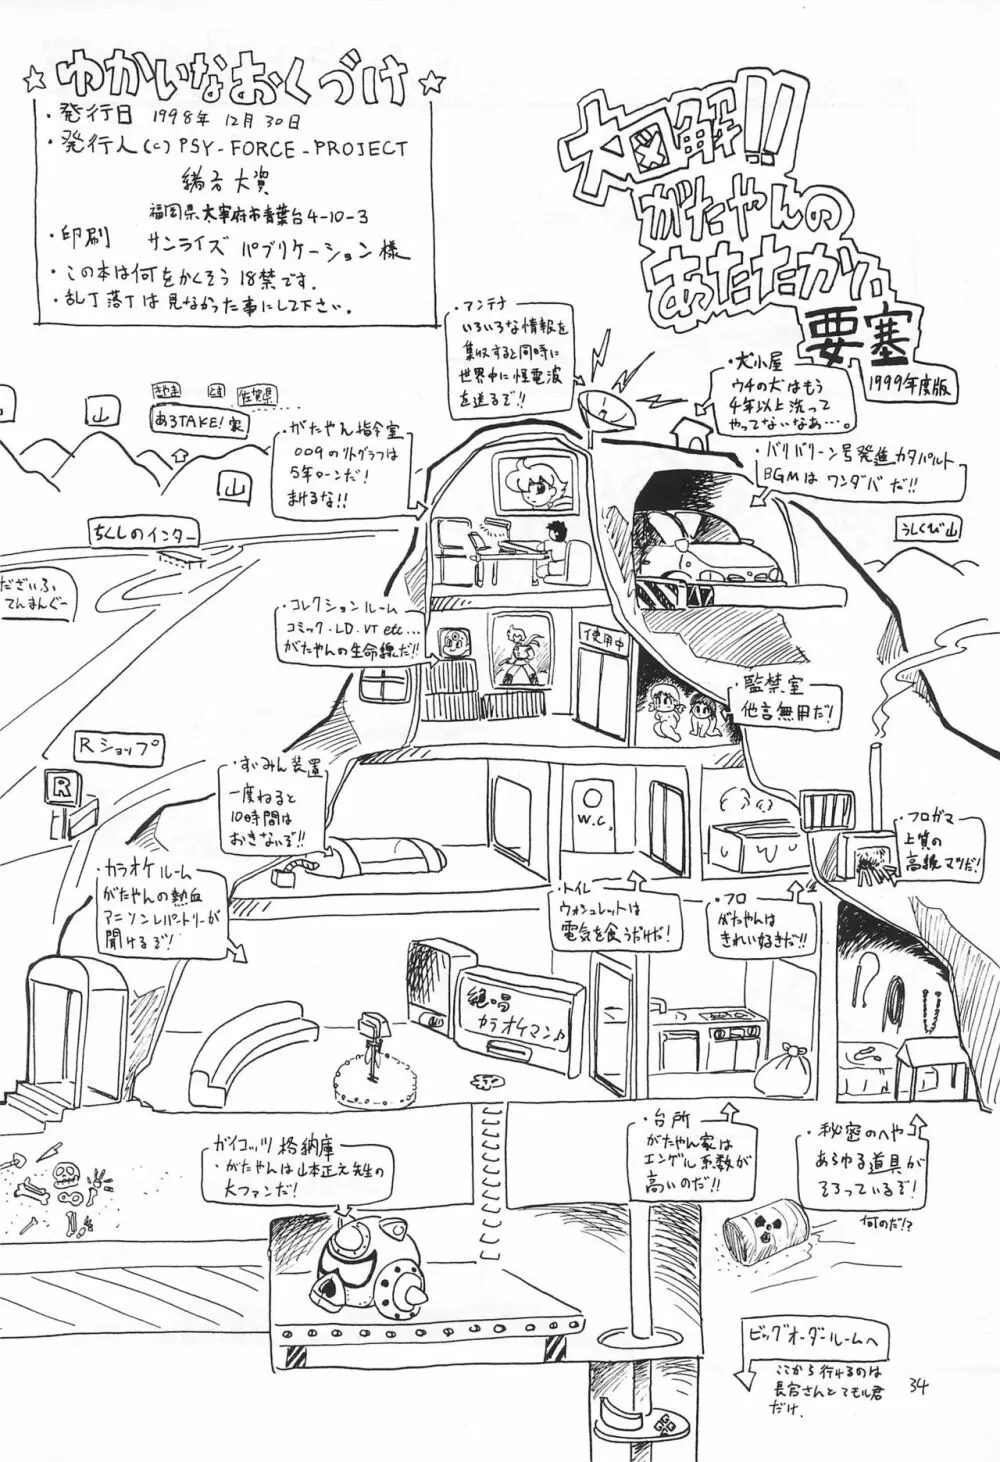 ☆ゆかいなおくづけ☆
・発行日 1998年 12月30日
・発行人 (c) PSY-FORCE-PROJECT
緒方大資
福岡県太宰府市青葉台4-10-3
・印刷 サンライズ パブリケーション様
・この本は何をかくそう18禁です.
・乱丁落丁は見なかった事にして下さい。
大図解!!
がたやんの
あたたかい
要塞
1999年度版
・アンテナ
いろいろな情報を
集収すると同時に
世界中に怪電波
を送るぞ!!
・犬小屋
ウチの犬はもう
4年以上洗って
やってないなぁ…。
・バリバリーン号発進カタパルト
BGMは ワンダバだ!!
・がたやん指令室
009のリトグラフは
5年ローンだ!
まけるな!!
きやま
とす
佐賀県
あるTAKE!家
山
山
山
ちくしのインター
だざいふ
てんまんぐー
うしくび山
・コレクションルーム
コミック.LD.VT etc...
がたやんの生命線だ!!
使用中
・監禁室
他言無用だ!
Rショップ
R
・すいみん装置
一度ねると
10時間は
おきないぞ!!
W.C.
・フロガマ
上質の
高級マツだ!
・カラオケルーム
がたやんの熱血
アニソンレパートリーが
聞けるぞ!
・トイレ
ウォシュレットは
電気を食うだけだ!
・フロ
がたやんは
きれい好きだ!!
絶唱
カラオケマン♪
ガイコッツ格納庫
・がたやんは山本正之先生の
大ファンだ!
・台所
がたやん家は
エンゲル係数が
高いのだ!!
・秘密のへや
あらゆる道具が
そろっているぞ!
何のだ!?
ビッグオーダールームへ
ここから行けるのは
長官さんとてもル君
だけ.
34